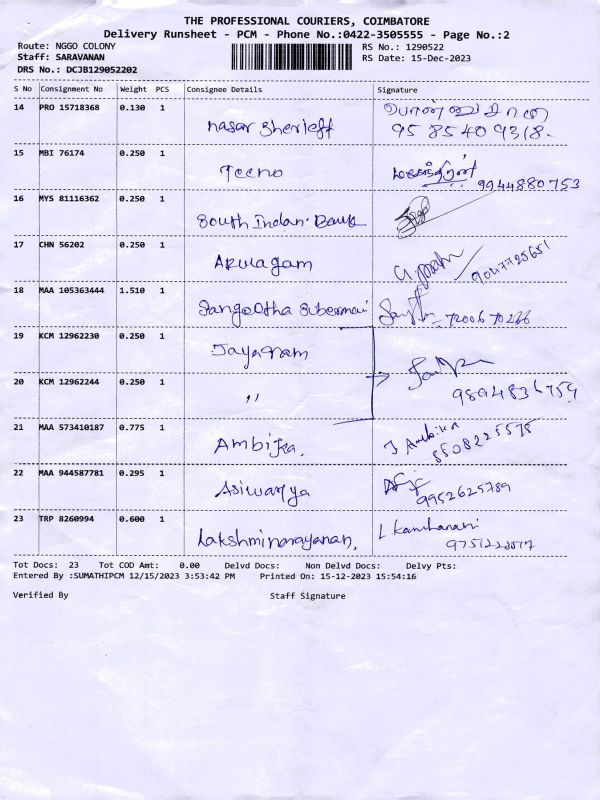 THE PROFESSIONAL COURIERS, COIMBATORE
Delivery Runsheet - PCM - Phone No.:0422-3505555 - Page No.:2
Route: NGGO COLONY
Staff: SARAVANAN
DRS No.: DCJB129052202
RS No.: 1290522
RS Date: 15-Dec-2023
S No Consignment No Weight PCS Consignee Details Signature
14 PRO 15718368 0.130 1 nasar Sherieff
9585409318.
15 MBI 76174 0.250 1 Teeno
9944880753
16 MYS 81116362 0.250 1 South Indan. Bank
17 CHN 56202 0.250 1 Arulagam
9047725651
18 MAA 105363444 1.510 1
7200670226
19 KCM 12962230 0.250 1 Jayaram
20 KCM 12962244 0.250 1 ,,
9894836759
21 MAA 573410187 0.775 1 Ambika. J Ambika
8508225578
22 MAA 944587781 0.295 1 Asiwarya
9952625789
23 TRP 8260994 0.600 1 Lakshminarayanan,
Tot Docs: 23 Tot COD Amt: 0.00 Delvd Docs: Non Delvd Docs: Delvy Pts:
Entered By :SUMATHIPCM 12/15/2023 3:53:42 PM Printed On: 15-12-2023 15:54:16
Verified By Staff Signature